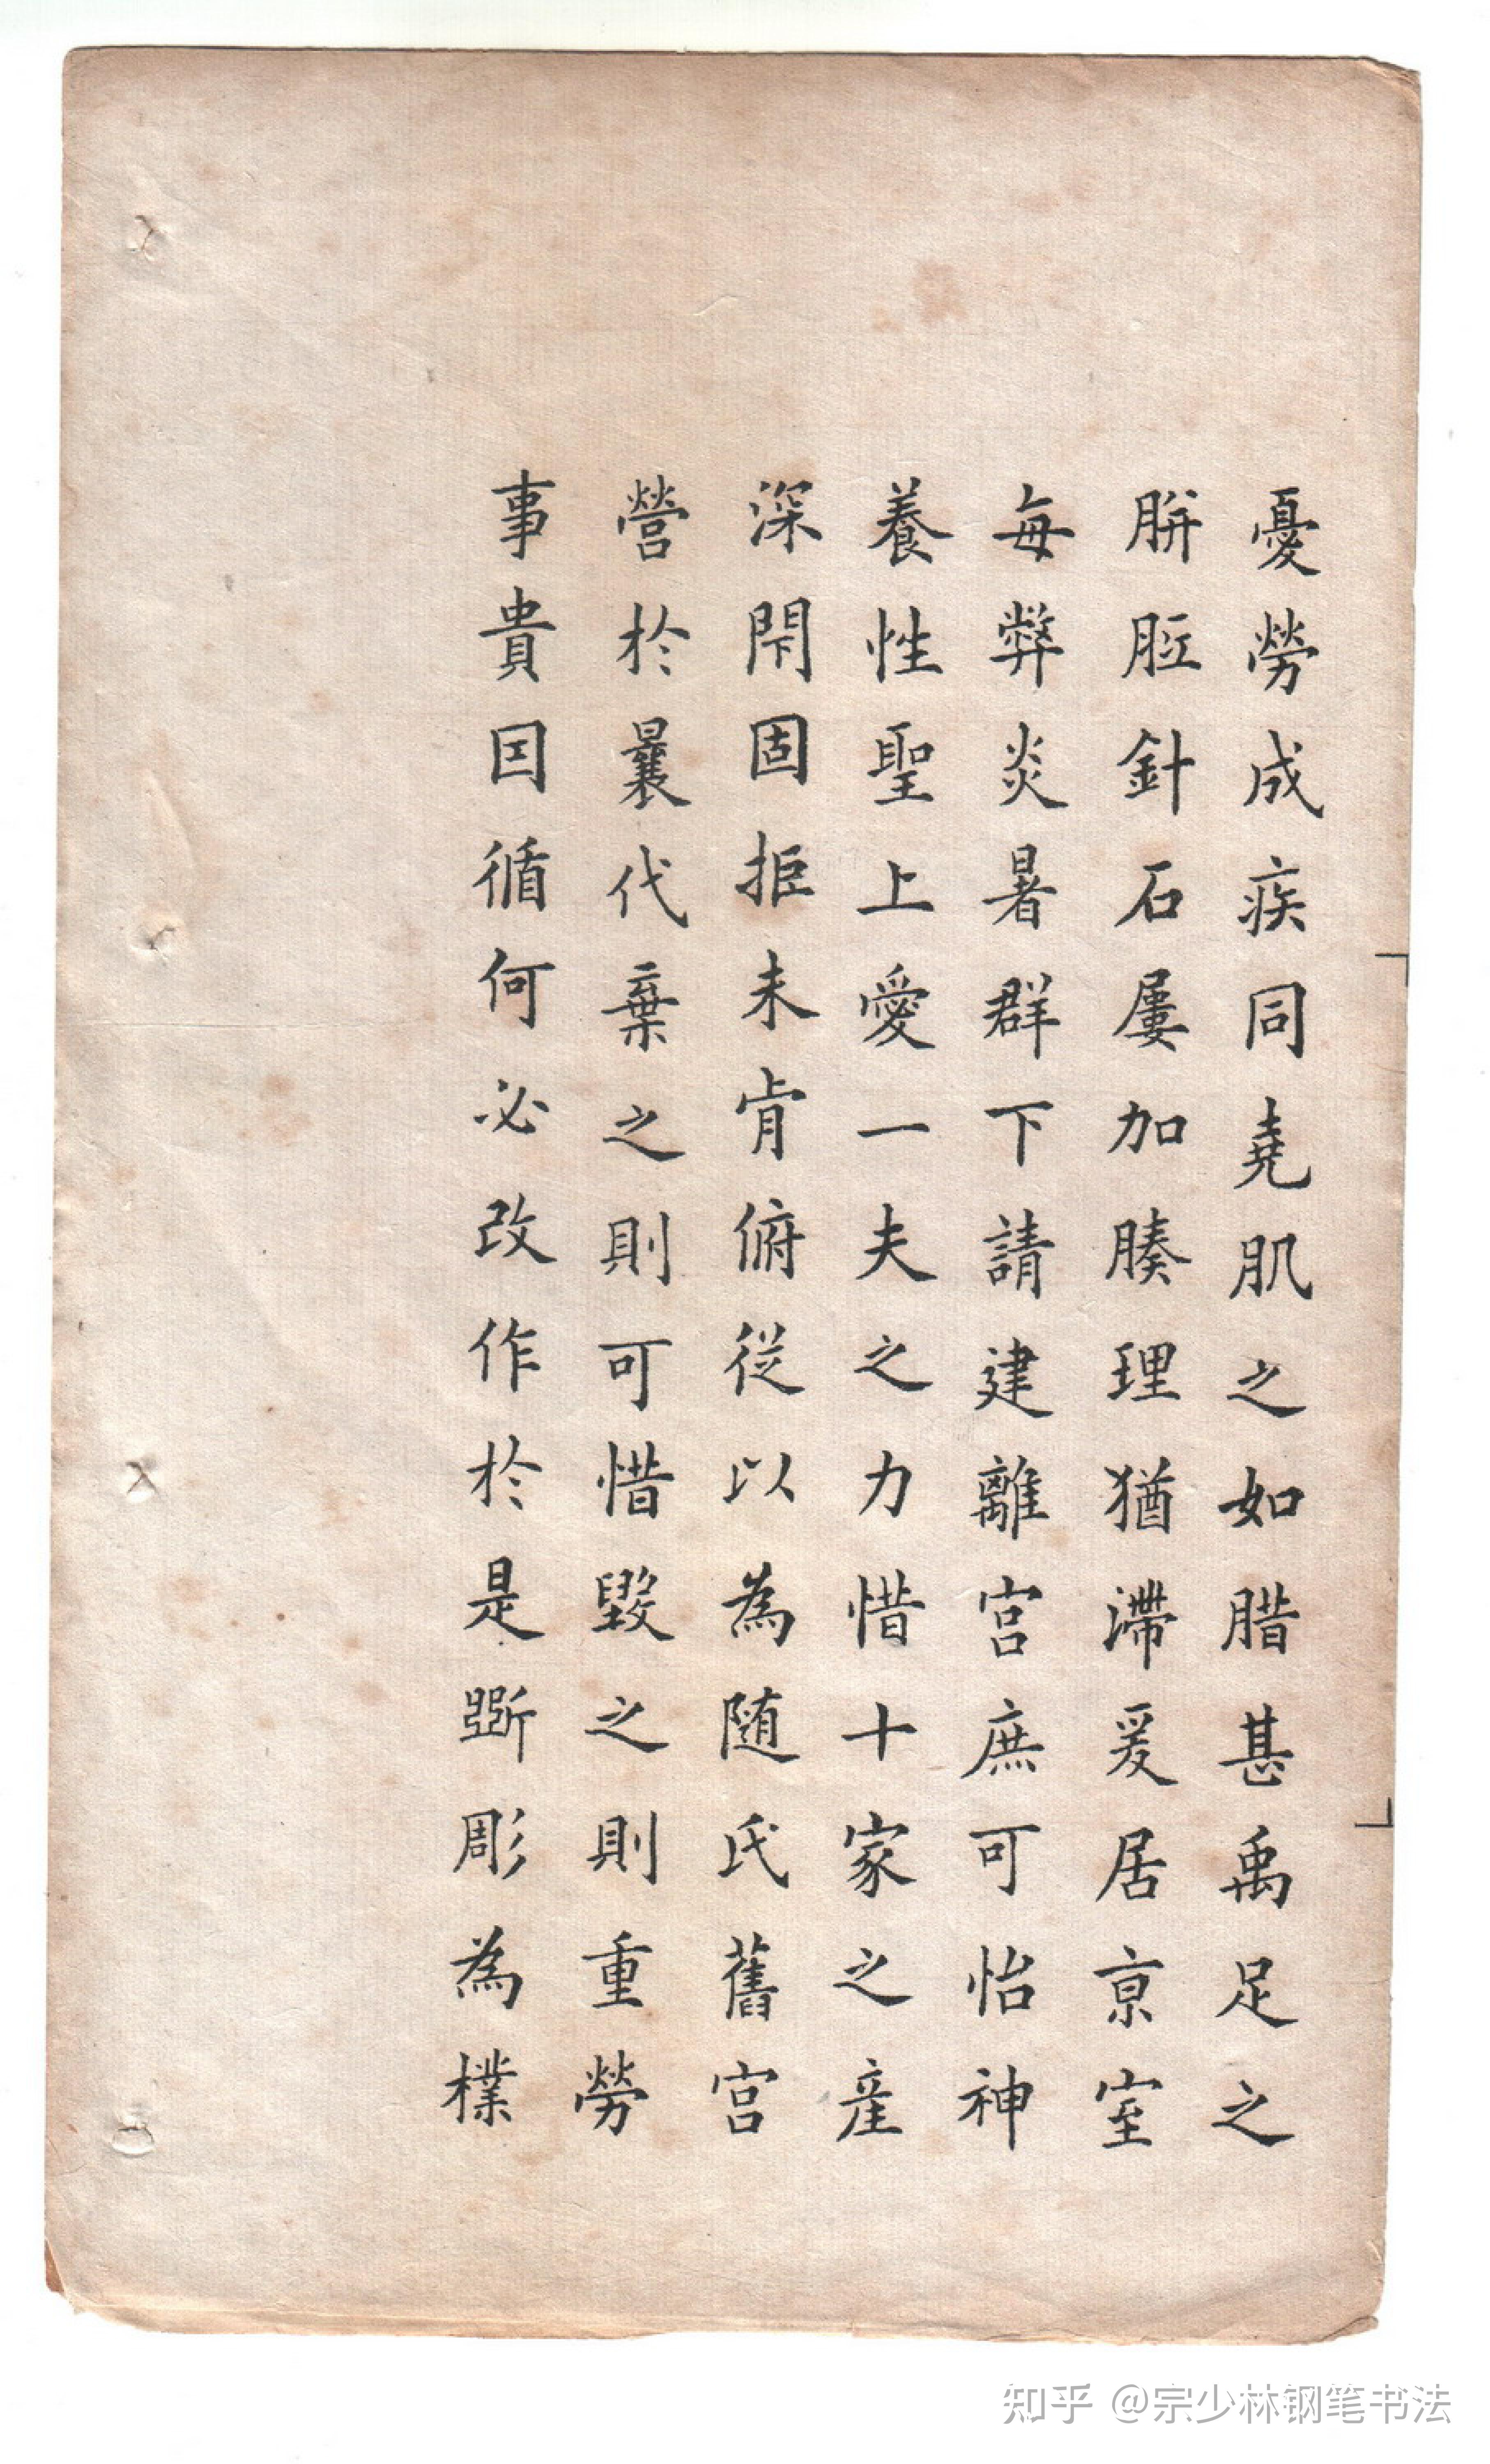 憂勞成疾同堯肌之如腊甚禹足之
胼胝針石屢加腠理猶滯爰居京室
每弊炎暑群下請建離宮庶可怡神
養性聖上愛一夫之力惜十家之產
深閇固拒未肯俯從以為随氏舊宮
營於曩代棄之則可惜毀之則重勞
事貴因循何必改作於是斵彫為樸
知乎 @宗少林钢笔书法